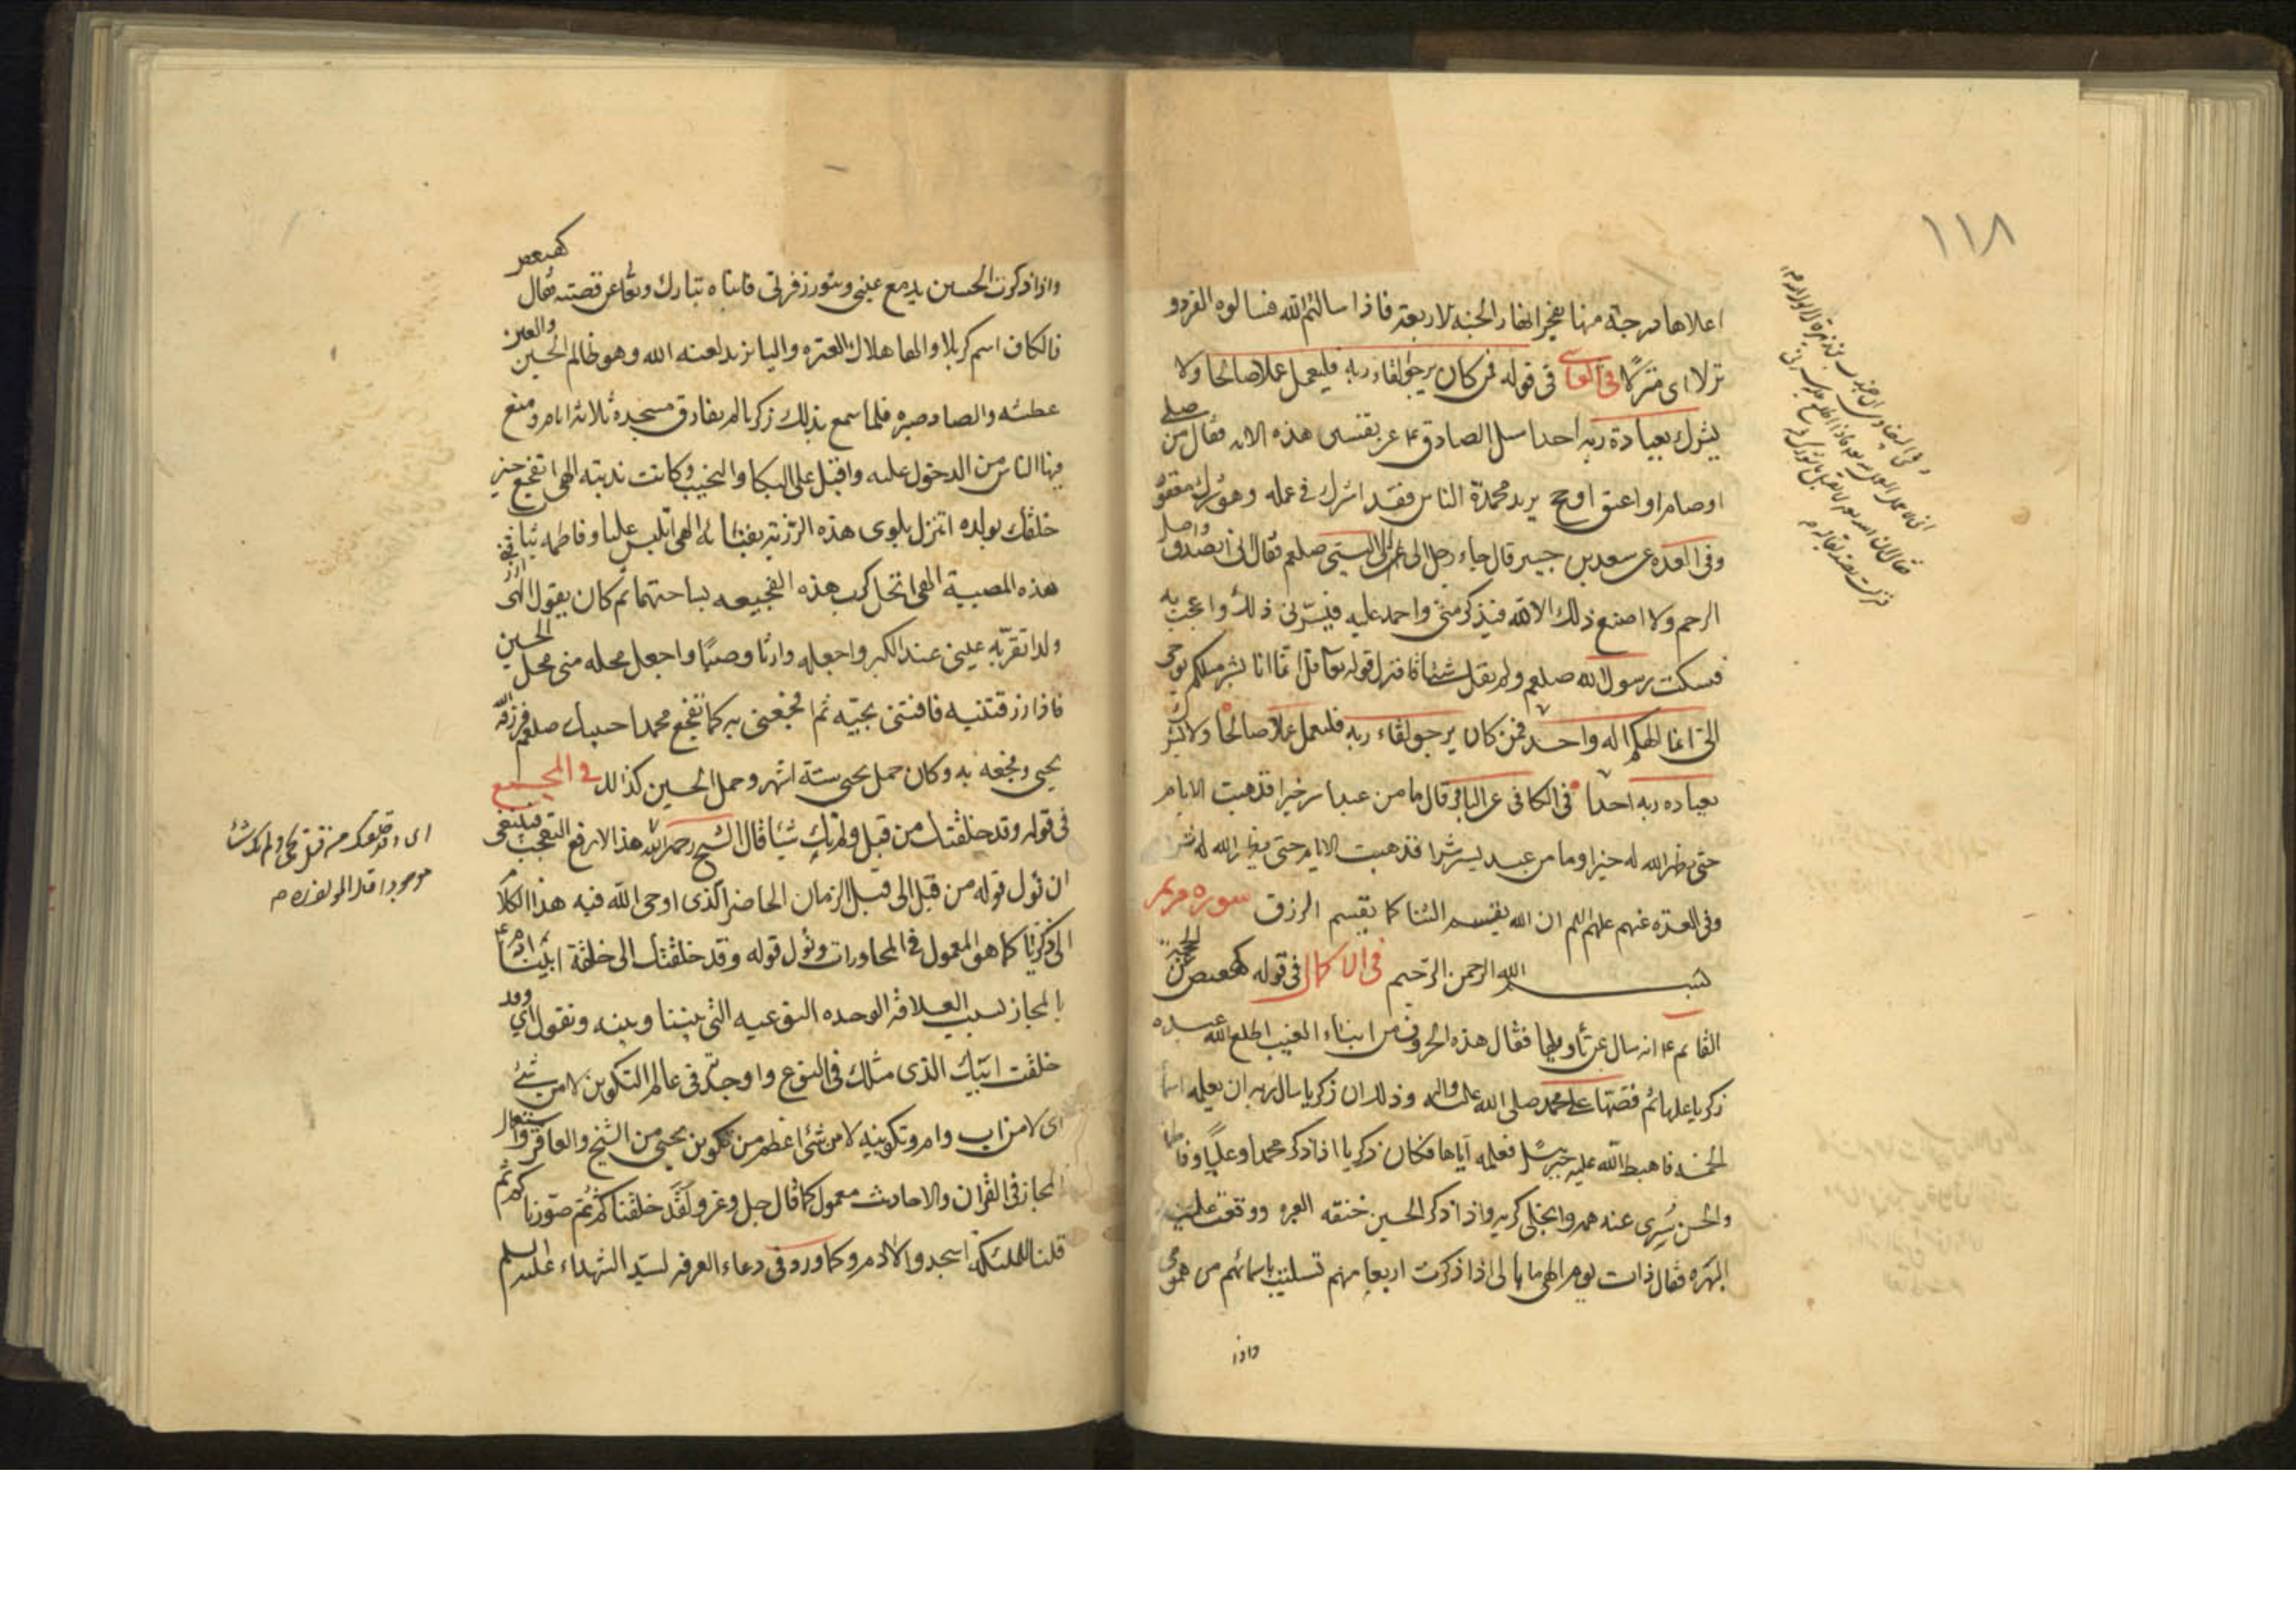 ١١٨
اعلاها درجة منها يفجر انهار الجنه الاربعة فاذا سالتم الله فسالوه الفردو
نزلا اى منزلا في العياشى فى قوله فمن كان يرجوا لقاء ربه فليعمل عملا صالحا ولا
يشرك بعبادة ربه احدا سئل الصادق ع عن تفسير هذه الايه فقال من صلى
او صام او اعتق او حج يريد محمدة الناس فقد اشرك فى عمله وهو شرك مغفور
وفى العده عن سعد بن جبير قال جاء رجل الى النبى صلعم فقال انى اتصدق واصل
الرحم ولا اصنع ذلك الا لله فيذكر منى واحمد عليه فيسرنى ذلك واعجب به
فسكت رسول الله صلعم ولم يقل شيئا فنزل قوله تعا قل انما انا بشر مثلكم يوحى
الىّ انما الهكم اله واحد فمن كان يرجو لقاء ربه فليعمل عملا صالحا ولا يشرك
بعباده ربه احدا فى الكافى عن الباقر قال ما من عبد اسر خيرا فذهبت الايام
حتى يظهر الله له خيرا وما من عبد يسر شرا فذهبت الايام حتى يظهر الله له شرا
وفى العده عنهم عليهم السلم ان الله يقسم الثنا كما يقسم الرزق سوره مريم
بسم الله الرحمن الرحيم فى الاكمال فى قوله كهيعص عن الحجة
القايم ع انه سال عن تأويلها فقال هذه الحروف من انباء الغيب اطلع الله عبده
زكريا عليها ثم قصتها على محمد صلى الله عليه واله وذلك ان زكريا سال ربه ان يعلمه اسما
الخمسه فاهبط الله عليه جبرئيل فعلمه اياها فكان زكريا اذا ذكر محمدا وعليا وفاطمة
والحسن سرى عنه همه وانجلى كربه واذا ذكر الحسين خنقه العبره ووقعت عليه
البهره فقال ذات يوم الهى ما بالى اذا ذكرت اربعا منهم تسليت باسمائهم من همومى
واذا
واذا ذكرت الحسين يدمع عينى وتثور زفرتى فانباه تبارك وتعا عن قصته فقال كهيعص
فالكاف اسم كربلا والها هلاك العتره واليا يزيد لعنه الله وهو ظالم الحسين والعين
عطشه والصاد صبره فلما سمع بذلك زكريا لم يفارق مسجده ثلاثة ايام ومنع
فيها الناس من الدخول عليه واقبل على البكا والنحيب وكانت ندبته الهى اتفجع خير
خلقك بولده اتنزل بلوى هذه الرزية بفنائه الهى اتلبس عليا وفاطمه ثياب
هذه المصيبة الهى اتحل كرب هذه الفجيعه بساحتهما ثم كان يقول الهى ارزقنى
ولدا تقر به عينى عند الكبر واجعله وارثا وصيا واجعل محله منى محل الحسين
فاذا رزقتنيه فافتنى بحبه ثم افجعنى به كما تفجع محمدا حبيبك صلعم فرزقه الله
يحيى وفجعه به وكان حمل يحيى ستة اشهر وحمل الحسين كذالك فى المجمع
فى قوله وقد خلقتك من قبل ولم تك شيئا قال الشيخ رحمه الله هذا لا يرفع التعجب فينبغى
ان نول قوله من قبل الى قبل الزمان الحاضر الذى اوحى الله فيه هذا الكلام
الى ذكريا كما هو المعمول فى المحاورات ونول قوله وقد خلقتك الى خلقة ابينا ادم ع
بالمجاز لسبب العلاقه الوحده النوعيه التى بيننا وبينه ونقول اى وقد
خلقت ابيك الذى مثلك فى النوع واوجدته فى عالم التكوين لا من شئ
اى لا من اب وام وتكوينه لا من شئ اعظم من تكوين يحيى من الشيخ والعاقر واستعمال
المجاز فى القران والاحاديث معمول كما قال جل وعز ولقد خلقناكم ثم صورناكم ثم
قلنا للملئكه اسجدوا لادم وكما ورد فى دعاء العرفه لسيد الشهداء عليه السلم
اى وقد خلقتك من قبل يحيى ولم تك شيئا
موجودا